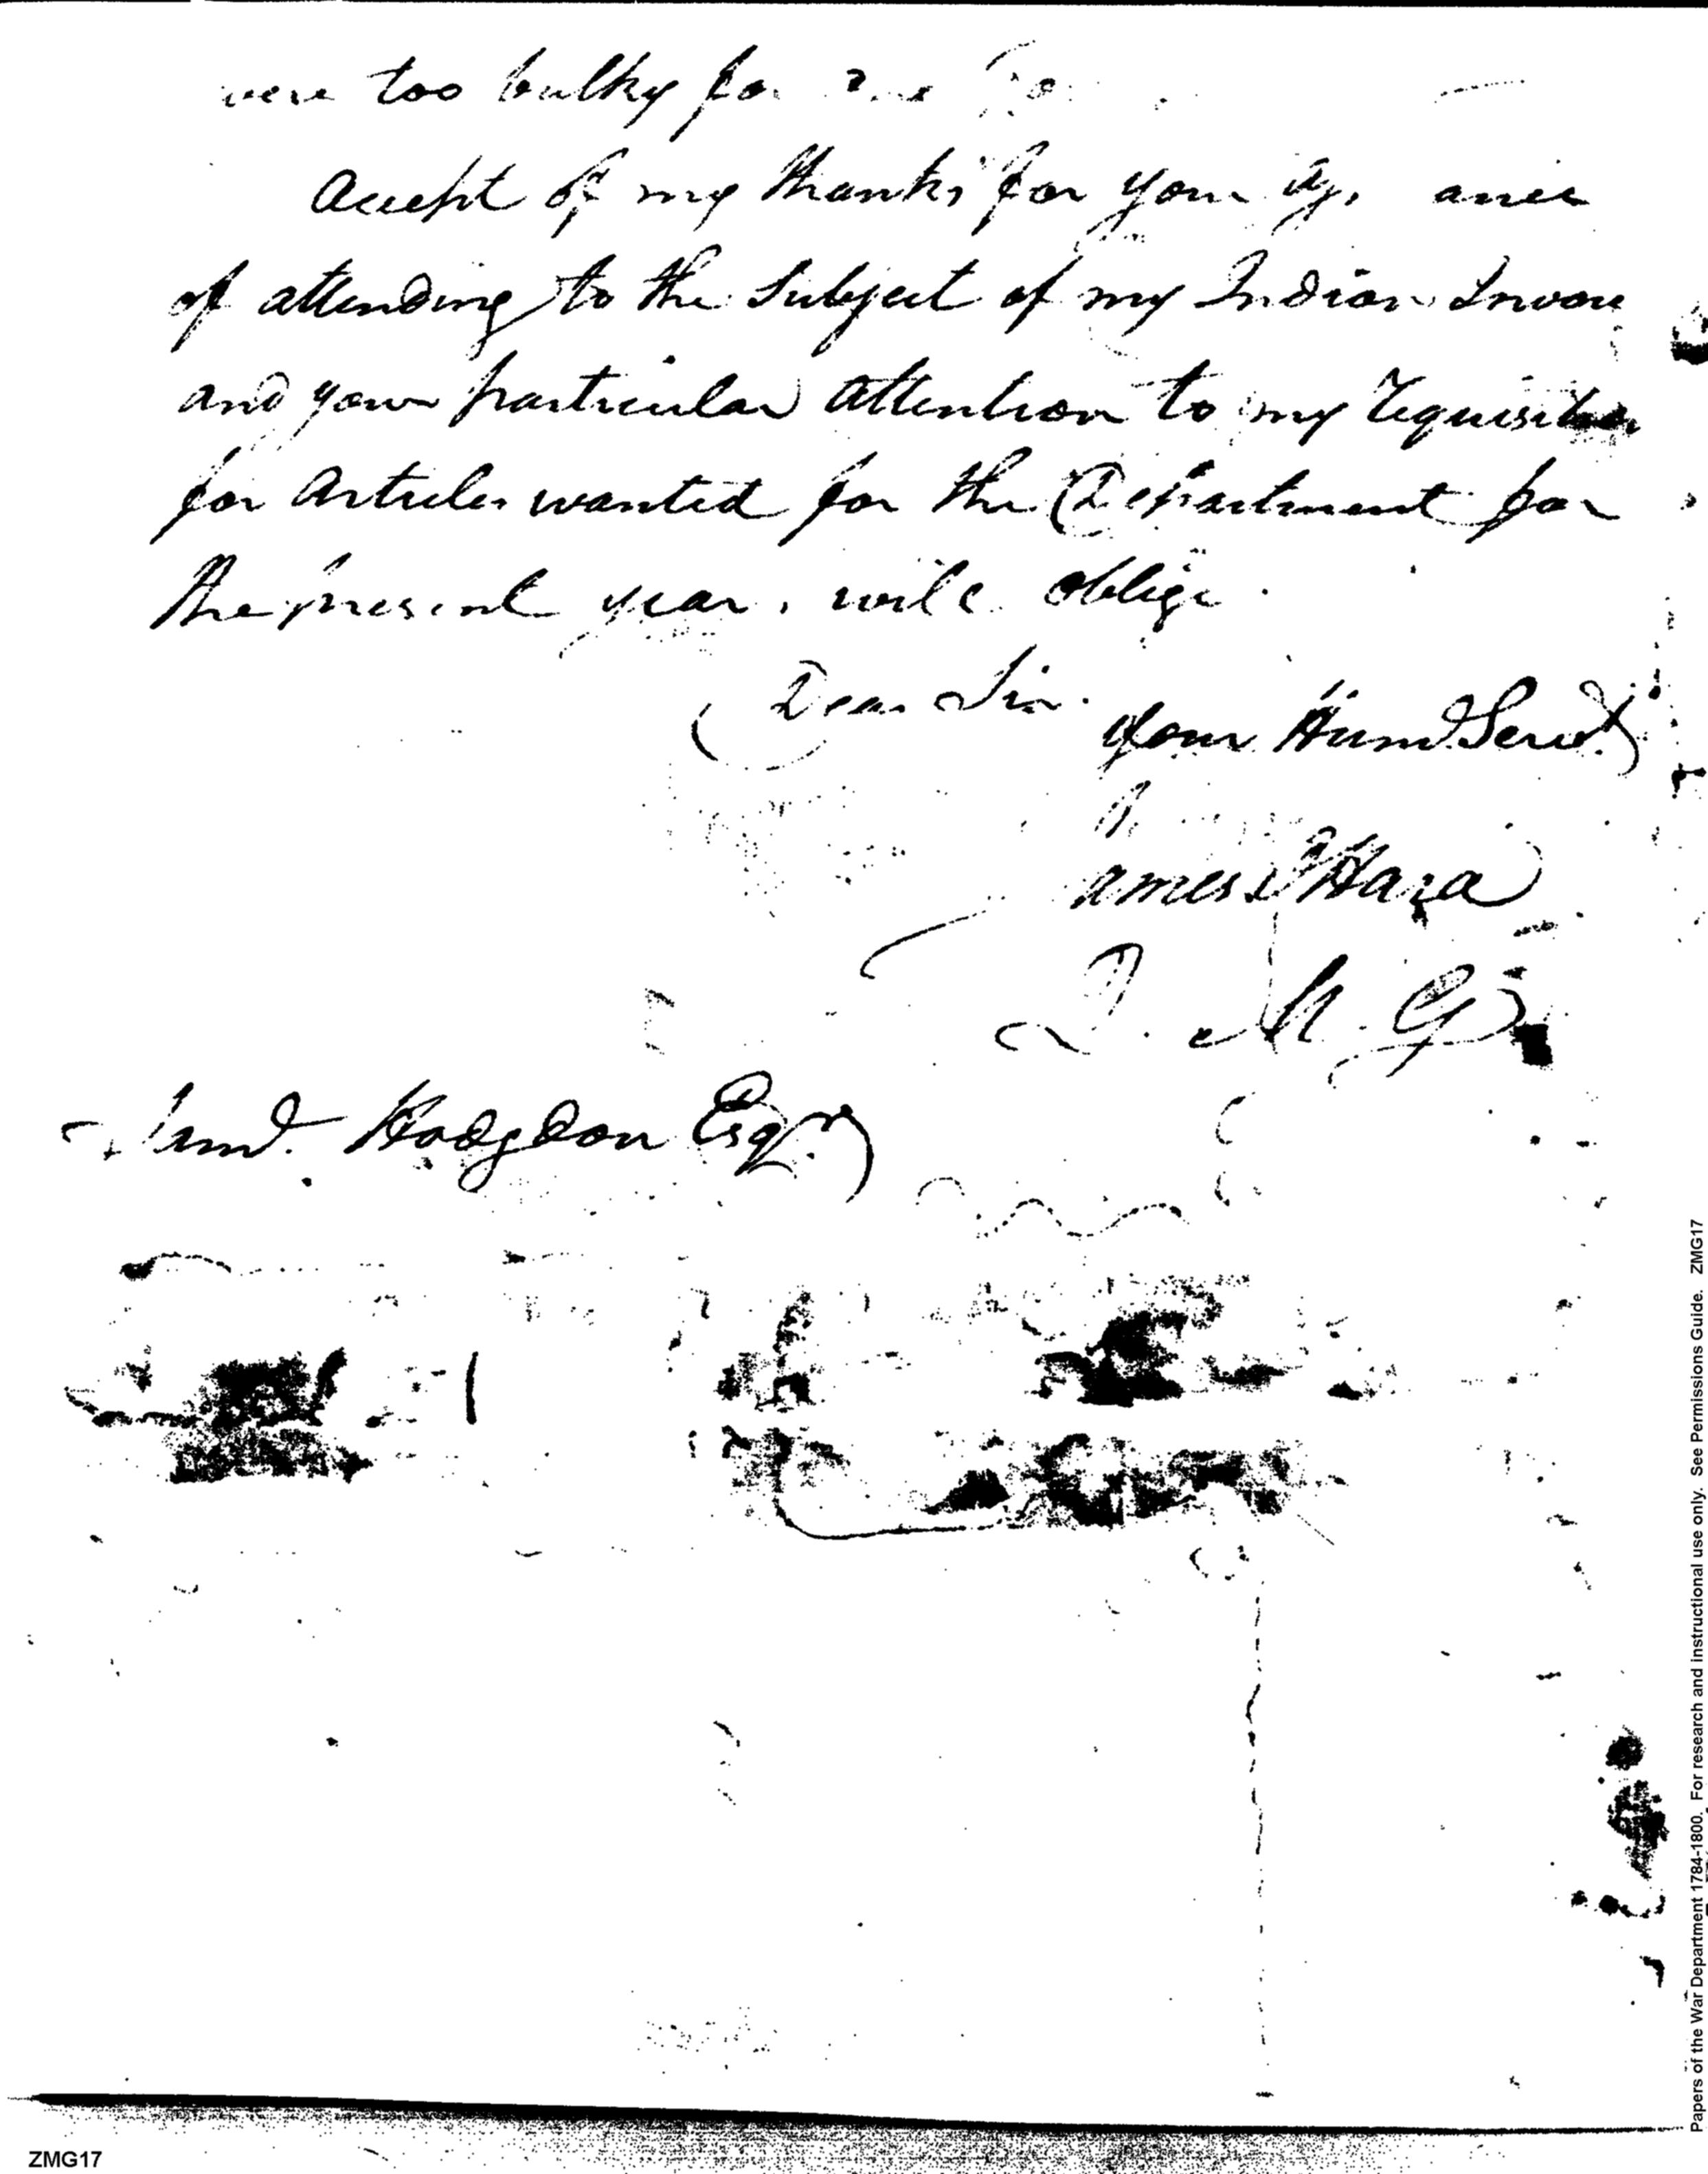 were too bulky for
Accept of my thanks for your
of attending to the Subject of my Indian Invoice
and your particular attention to my requisition
for Articles wanted for the Department for
the present year, will oblige.
Dear Sir.
your Hum. Servt.
James O'Hara
Q. M. G.
Saml. Hodgdon Esqr.
Papers of the War Department 1784-1800. For research and instructional use only. See Permissions Guide. ZMG17
ZMG17